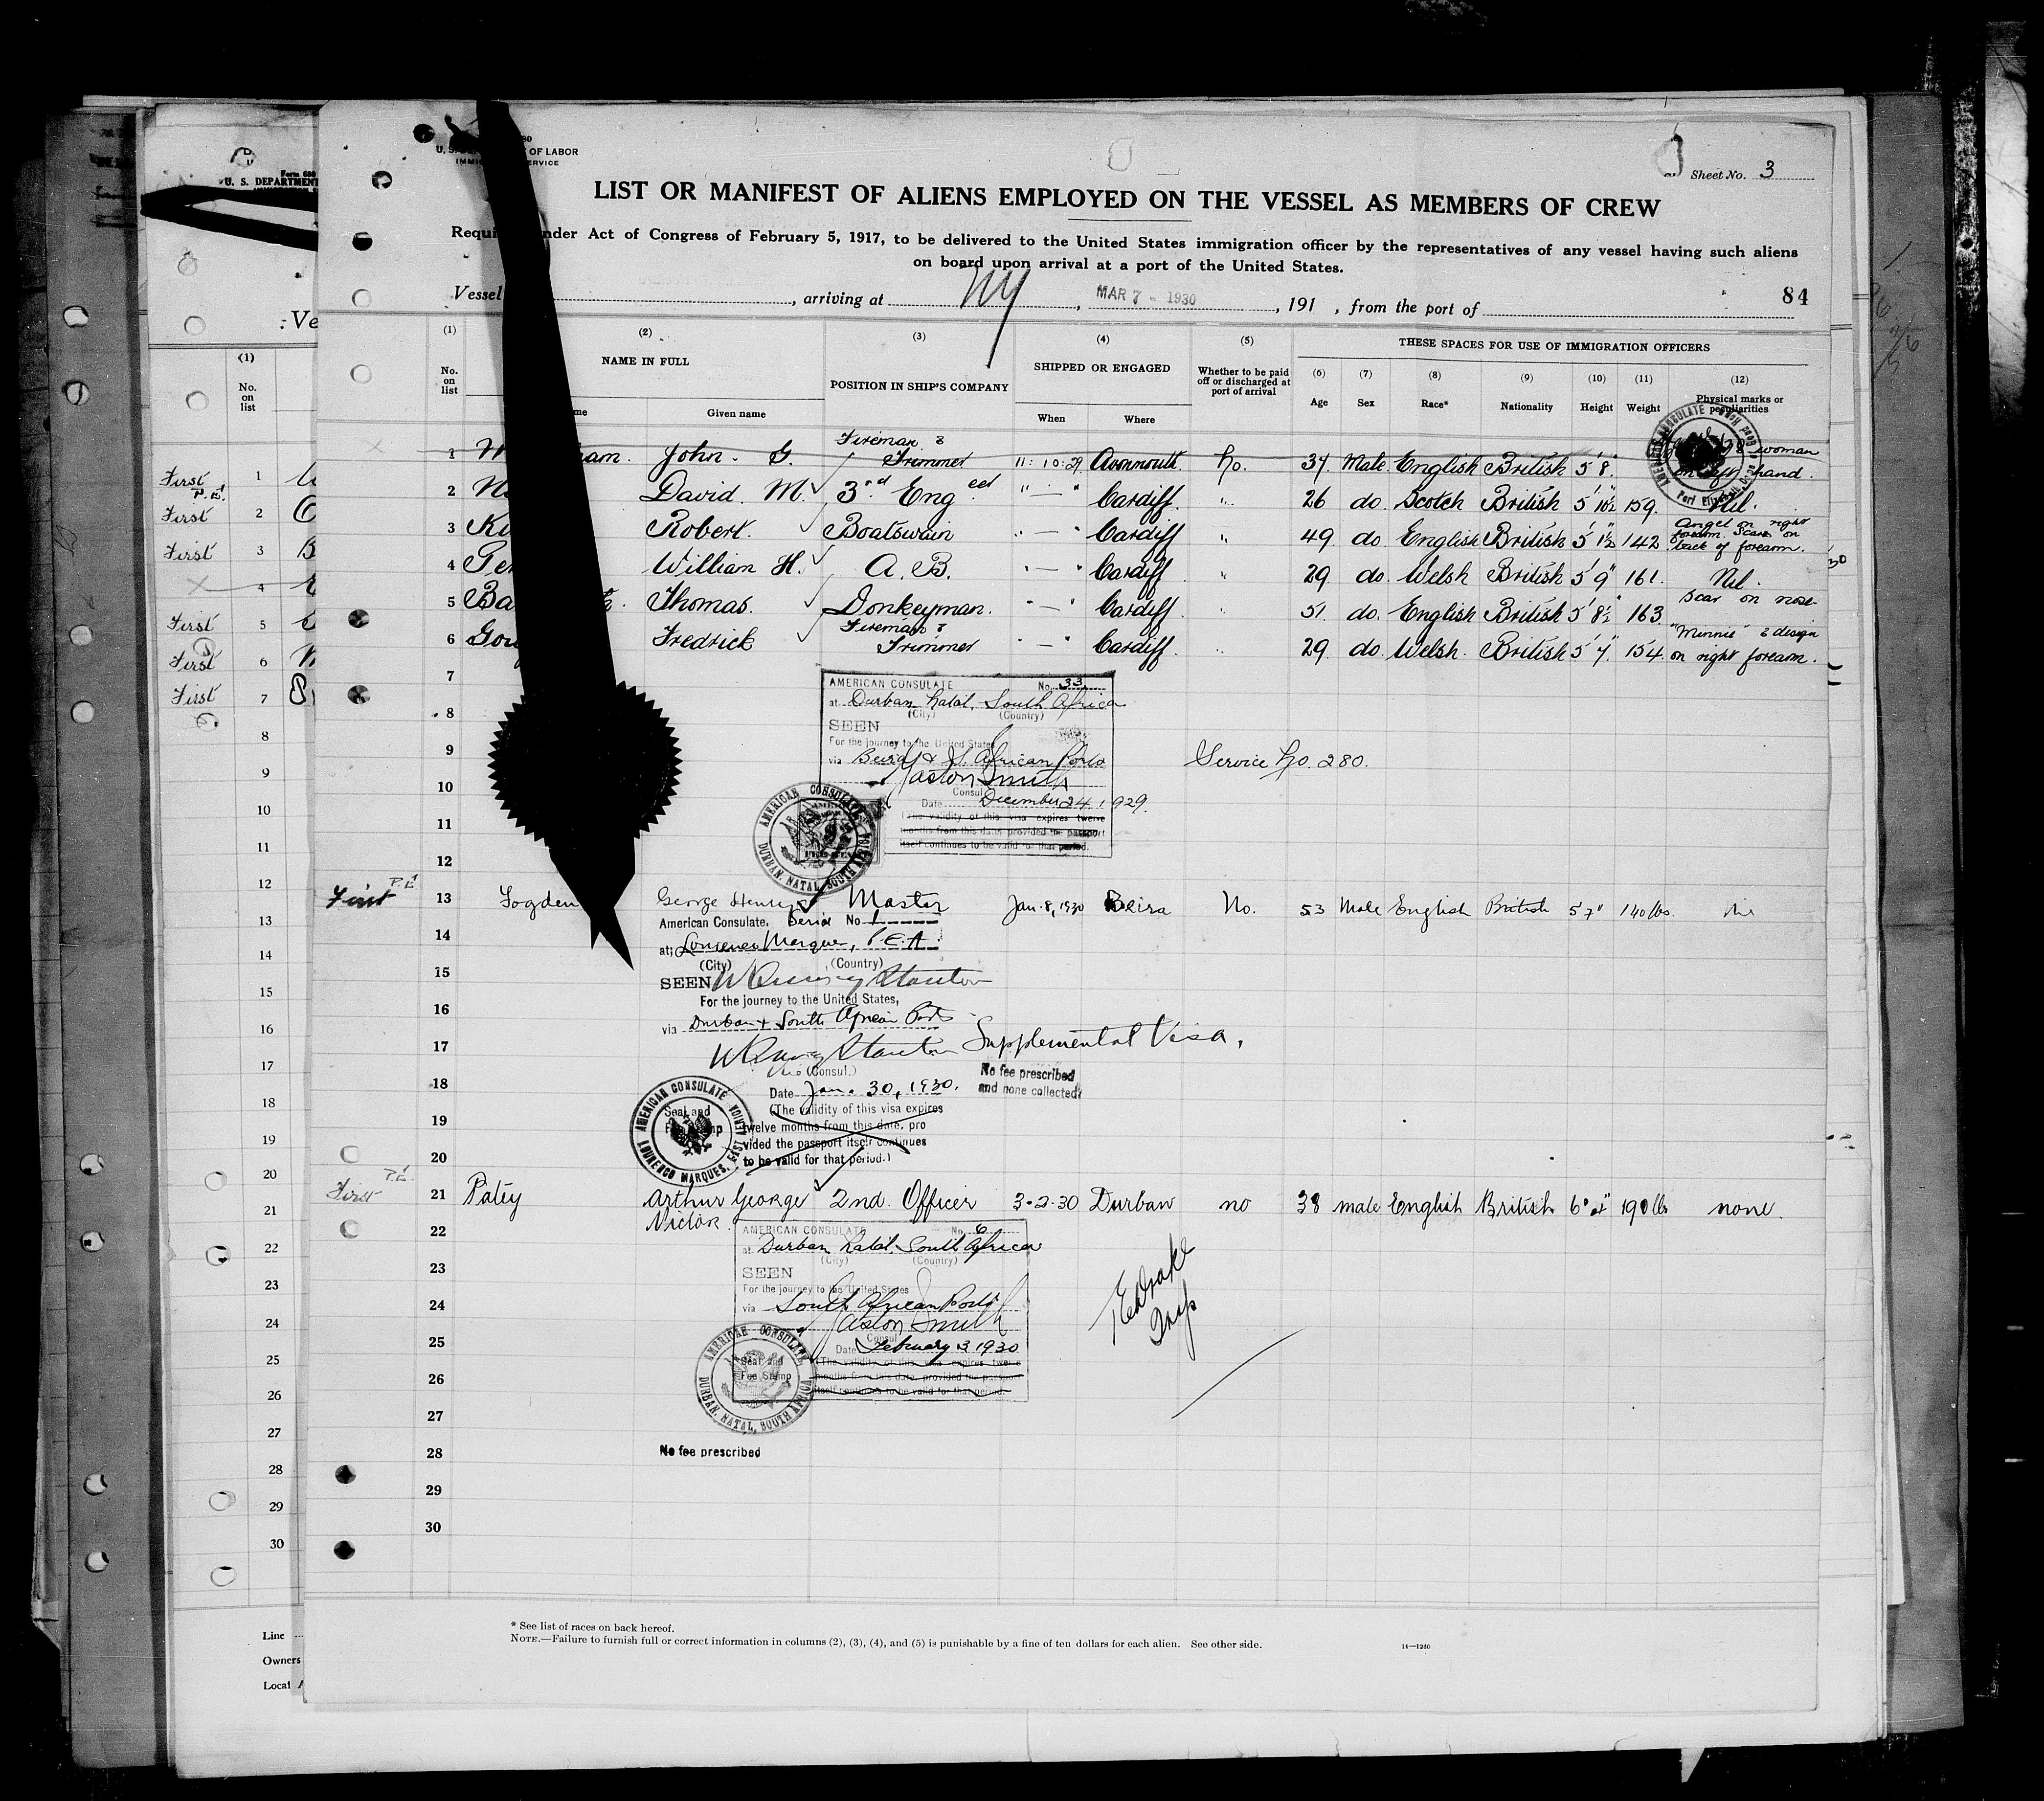 U. S. DEPARTMENT
OF LABOR
SERVICE
Sheet No. 3
LIST OR MANIFEST OF ALIENS EMPLOYED ON THE VESSEL AS MEMBERS OF CREW
under Act of Congress of February 5, 1917, to be delivered to the United States immigration officer by the representatives of any vessel having such aliens
on board upon arrival at a port of the United States.
Vessel , arriving at NY , MAR 7 - 1930 , 191 , from the port of
84
(1) (2) (3) (4) (5) THESE SPACES FOR USE OF IMMIGRATION OFFICERS
No. on list NAME IN FULL POSITION IN SHIP'S COMPANY SHIPPED OR ENGAGED Whether to be paid off or discharged at port of arrival (6) (7) (8) (9) (10) (11) (12)
Given name When Where Age Sex Race* Nationality Height Weight Physical marks or peculiarities
1 John. G. Fireman & Trimmer 11:10:29 Avonmouth. No. 37 Male English British 5'8" woman hand.
2 David. M. 3rd Eng eer " — " Cardiff. " 26 do. Scotch British 5'10½ 159. Nil.
3 Robert. Boatswain " — " Cardiff " 49 do English British 5'1½" 142 Angel on right forearm. Scar on back of forearm.
4 William H. A. B. " — " Cardiff " 29 do. Welsh British 5'9" 161. Nil.
5 Thomas. Donkeyman. " — " Cardiff " 51 do. English British 5'8½" 163 Scar on nose
6 Fredrick Fireman & Trimmer " — Cardiff. " 29 do. Welsh. British 5'7" 154 "Minnie" & design on right forearm.
7
8
9
10
11
12
AMERICAN CONSULATE No. 33
at Durban Natal, South Africa
(City) (Country)
SEEN
For the journey to the United States
via Beira & S. African Ports
Gaston Smith
Consul
Date December 24, 1929.
(The validity of this visa expires twelve
months from this date provided the passport
itself continues to be valid for that period.
Service No. 280.
AMERICAN CONSULATE
DURBAN, NATAL, SOUTH AFRICA
First P.E. 13 Logden George Henry Master Jan. 8, 1930 Beira No. 53 Male English British 5'7" 140 lbs. Nil
American Consulate, Serial No. 1
at Lourenco Marques, P.E.A.
(City) (Country)
14
SEEN
15
For the journey to the United States,
16
via Durban & South African Ports
17
Supplemental Visa,
(Consul.)
No fee prescribed
and none collected
18
Date Jan. 30, 1930.
(The validity of this visa expires
19
twelve months from this date, pro
vided the passport itself continues
20
to be valid for that period.)
AMERICAN CONSULATE
LOURENCO MARQUES, EAST AFRICA
First P.E. 21 Patey Arthur George Victor. 2nd. Officer 3-2-30 Durban no 38 male English British 6'0½" 190 lbs none.
22
AMERICAN CONSULATE No. 6
at Durban Natal, South Africa
(City) (Country)
23
SEEN
For the journey to the United States
24
via South African Ports
Gaston Smith
Consul
25
Date February 3 1930
(The validity of this visa expires twelve
26
months from this date, provided the passport
itself continues to be valid for that period.
Seal and
Fee Stamp
AMERICAN CONSULATE
DURBAN, NATAL, SOUTH AFRICA
27
28
No fee prescribed
29
30
* See list of races on back hereof.
NOTE.—Failure to furnish full or correct information in columns (2), (3), (4), and (5) is punishable by a fine of ten dollars for each alien. See other side.
14—1240
Form 680
U. S. DEPARTMENT
(1)
No. on list
First P.E. 1
First 2
First 3
4
First 5
First 6
First 7
8
9
10
11
12
13
14
15
16
17
18
19
20
21
22
23
24
25
26
27
28
29
30
Line
Owners
Local